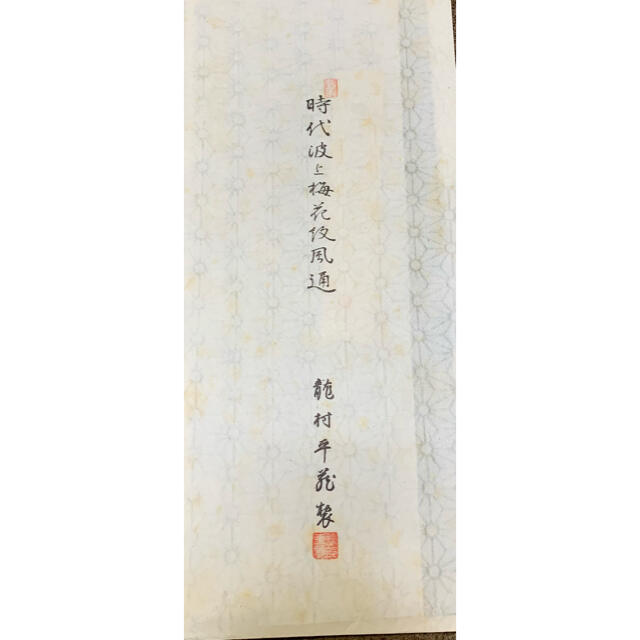 時代波上梅花紋風通
龍村平藏製